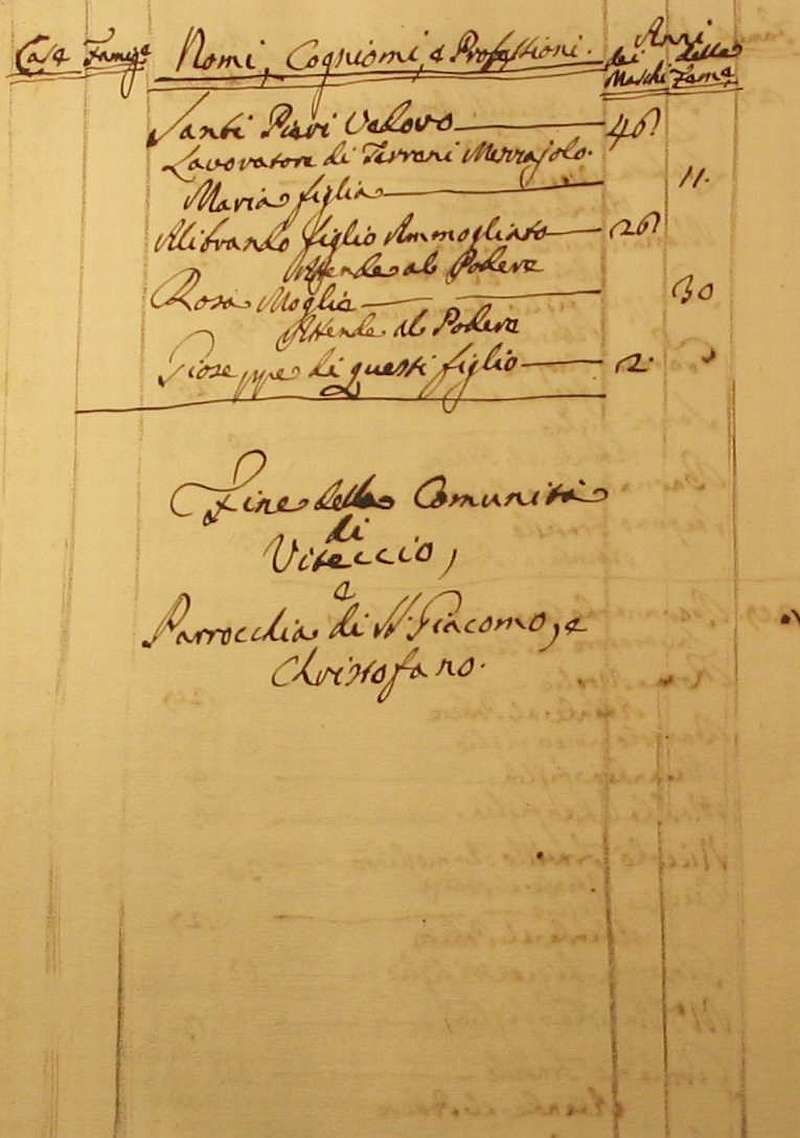 Case Famig.e Nomi, Cogniomi, e Professioni. Anni
dei delle
Maschi Fem.e
Santi Pieri Vedovo 46
Lavoratore di Terreni Mezzajolo.
Maria figlia 11.
Alibrando figlio Ammogliato 26
Attende al Podere
Rosa Moglie 30
Attende al Podere
Gioseppe di questi figlio 2.
Fine della Comunità
di
Viteccio,
e
Parrocchia di SS. Giacomo, e
Christofano.